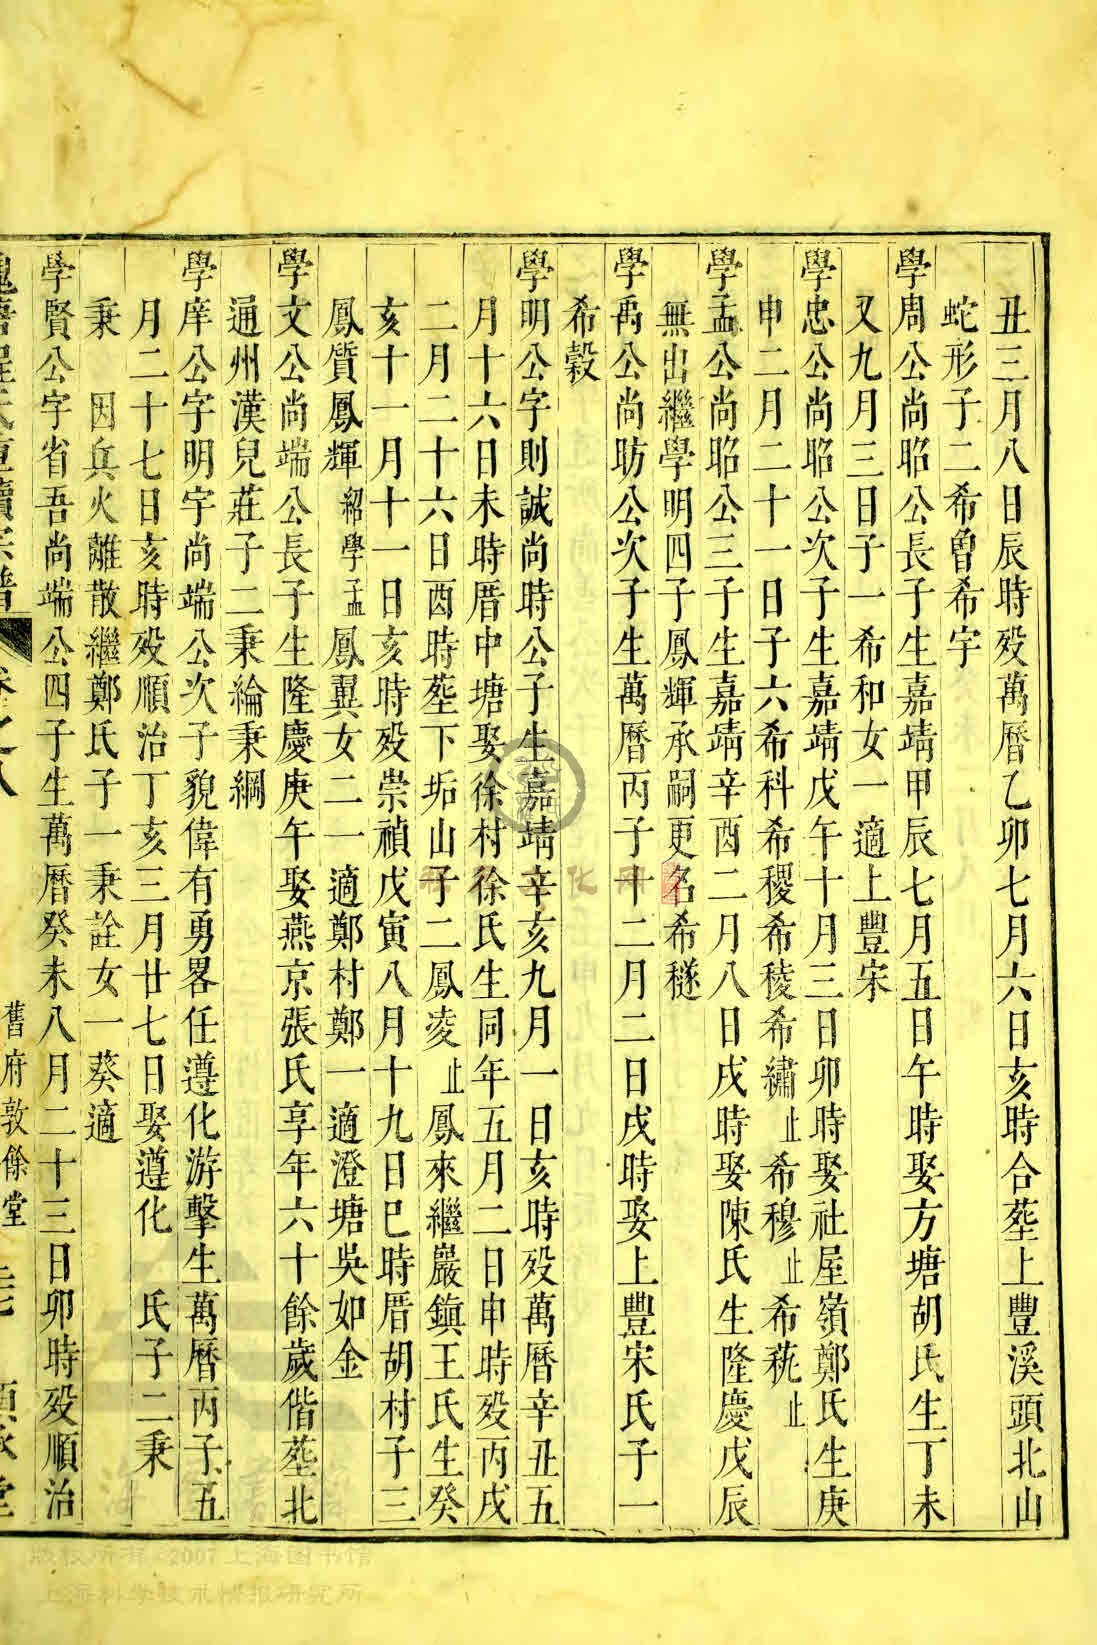 丑三月八日辰時歿萬曆乙卯七月六日亥時合塟上豐溪頭北山
蛇形子二希魯希宇
學周公尚昭公長子生嘉靖甲辰七月五日午時娶方塘胡氏生丁未
又九月三日子一希和女一適上豐宋
學忠公尚昭公次子生嘉靖戊午十月三日卯時娶社屋嶺鄭氏生庚
申二月二十一日子六希科希稷希稜希繡止希穆止希𥞊止
學孟公尚昭公三子生嘉靖辛酉二月八日戌時娶陳氏生隆慶戊辰
無出繼學明四子鳳輝承嗣更名希穟
學禹公尚昉公次子生萬曆丙子十二月二日戌時娶上豐宋氏子一
希穀
學明公字則誠尚時公子生嘉靖辛亥九月一日亥時歿萬曆辛丑五
月十六日未時厝中塘娶徐村徐氏生同年五月二日申時歿丙戌
二月二十六日酉時塟下垢山子二鳳凌止鳳來繼巖鎮王氏生癸
亥十一月十一日亥時歿崇禎戊寅八月十九日巳時厝胡村子三
鳳質鳳輝紹學孟鳳翼女二一適鄭村鄭一適澄塘吳如金
學文公尚端公長子生隆慶庚午娶燕京張氏享年六十餘歲偕塟北
通州漢兒莊子二秉綸秉綱
學庠公字明宇尚端公次子貌偉有勇畧任遵化游擊生萬曆丙子五
月二十七日亥時歿順治丁亥三月廿七日娶遵化 氏子二秉
秉 因兵火離散繼鄭氏子一秉詮女一葵適
學賢公字省吾尚端公四子生萬曆癸未八月二十三日卯時歿順治
舊府敦餘堂
版权所有 2007 上海图书馆
上海科学技术情报研究所